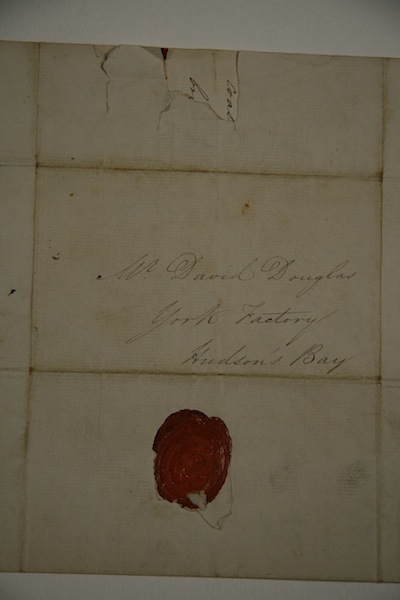 Mr. David Douglas
York Factory
Hudson's Bay